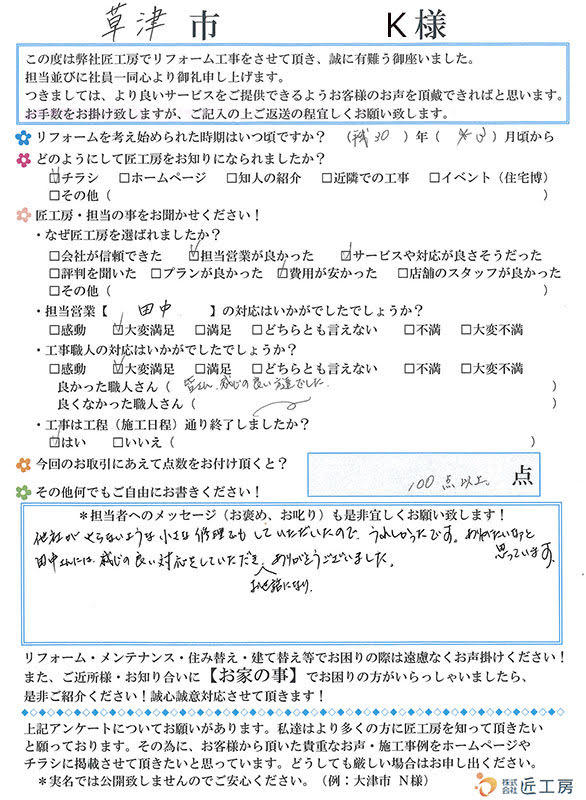 草津 市 K様
この度は弊社匠工房でリフォーム工事をさせて頂き、誠に有難う御座いました。
担当並びに社員一同心より御礼申し上げます。
つきましては、より良いサービスをご提供できるようお客様のお声を頂戴できればと思います。
お手数をお掛け致しますが、ご記入の上ご返送の程宜しくお願い致します。
リフォームを考え始められた時期はいつ頃ですか？ ( 30 ) 年 ( ) 月頃から
どのようにして匠工房をお知りになられましたか？
☑チラシ □ホームページ □知人の紹介 □近隣での工事 □イベント（住宅博）
□その他（ ）
匠工房・担当の事をお聞かせください！
・なぜ匠工房を選ばれましたか？
□会社が信頼できた ☑担当営業が良かった ☑サービスや対応が良さそうだった
□評判を聞いた □プランが良かった ☑費用が安かった □店舗のスタッフが良かった
□その他（ ）
・担当営業【 田中 】の対応はいかがでしたでしょうか？
□感動 ☑大変満足 □満足 □どちらとも言えない □不満 □大変不満
・工事職人の対応はいかがでしたでしょうか？
□感動 ☑大変満足 □満足 □どちらとも言えない □不満 □大変不満
良かった職人さん（ 皆さん、感じの良い方達でした。 ）
良くなかった職人さん（ ）
・工事は工程（施工日程）通り終了しましたか？
☑はい □いいえ（ ）
今回のお取引にあえて点数をお付け頂くと？ 100点以上。 点
その他何でもご自由にお書きください！
＊担当者へのメッセージ（お褒め、お叱り）も是非宜しくお願い致します！
他社がやらないような小さな修理もしていただいたので、うれしかったです。ありがたいなあと
思っています。
田中さんには、感じの良い対応をしていただき、ありがとうございました。
お世話になり、
リフォーム・メンテナンス・住み替え・建て替え等でお困りの際は遠慮なくお声掛けください！
また、ご近所様・お知り合いに【お家の事】でお困りの方がいらっしゃいましたら、
是非ご紹介ください！誠心誠意対応させて頂きます！
上記アンケートについてお願いがあります。私達はより多くの方に匠工房を知って頂きたい
と願っております。その為に、お客様から頂いた貴重なお声・施工事例をホームページや
チラシに掲載させて頂きたいと思っています。どうしても厳しい場合はお申し出ください。
＊実名では公開致しませんのでご安心ください。（例：大津市 N様）
株式会社 匠工房